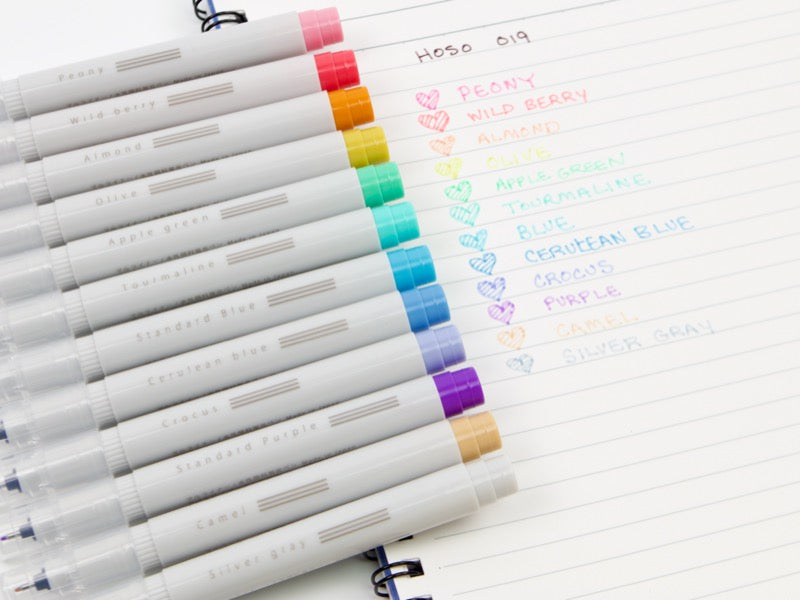 Peony
Wild berry
Almond
Olive
Apple green
Tourmaline
Standard Blue
Cerulean blue
Crocus
Standard Purple
Camel
Silver gray
HOSO 019
PEONY
WILD BERRY
ALMOND
OLIVE
APPLE GREEN
TOURMALINE
BLUE
CERULEAN BLUE
CROCUS
PURPLE
CAMEL
SILVER GRAY